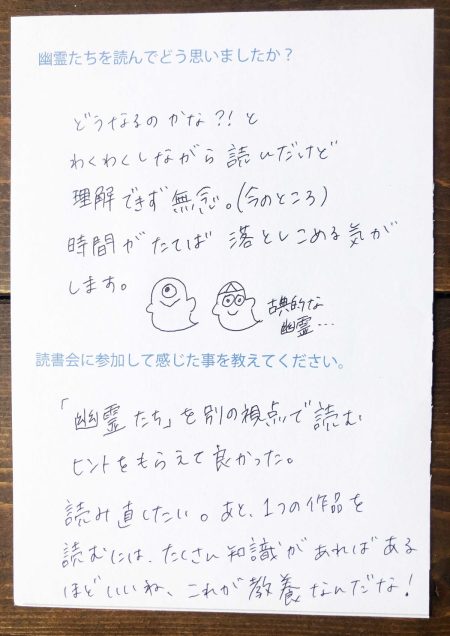 幽霊たちを読んでどう思いましたか？
どうなるのかな?!と
わくわくしながら読んだけど
理解できず無念。(今のところ)
時間がたてば落としこめる気が
します。
古典的な
幽霊…
読書会に参加して感じた事を教えてください。
「幽霊たち」を別の視点で読む
ヒントをもらえて良かった。
読み直したい。あと、1つの作品を
読むには、たくさん知識があればある
ほどいいね、これが教養なんだな！